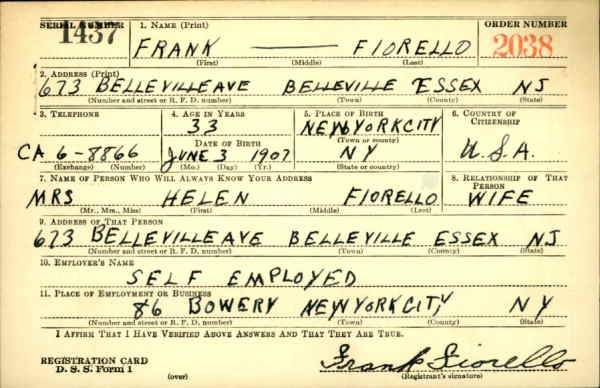 SERIAL NUMBER 1. NAME (Print) ORDER NUMBER
1437 FRANK FIORELLO 2038
(First) (Middle) (Last)
2. ADDRESS (Print)
673 BELLEVILLE AVE BELLEVILLE ESSEX NJ
(Number and street or R. F. D. number) (Town) (County) (State)
3. TELEPHONE 4. AGE IN YEARS 5. PLACE OF BIRTH 6. COUNTRY OF CITIZENSHIP
33 NEW YORK CITY
DATE OF BIRTH (Town or county)
CA 6-8866 JUNE 3 1907 NY U.S.A.
(Exchange) (Number) (Mo.) (Day) (Yr.) (State or country)
7. NAME OF PERSON WHO WILL ALWAYS KNOW YOUR ADDRESS 8. RELATIONSHIP OF THAT PERSON
MRS HELEN FIORELLO WIFE
(Mr., Mrs., Miss) (First) (Middle) (Last)
9. ADDRESS OF THAT PERSON
673 BELLEVILLE AVE BELLEVILLE ESSEX NJ
(Number and street or R. F. D. number) (Town) (County) (State)
10. EMPLOYER'S NAME
SELF EMPLOYED
11. PLACE OF EMPLOYMENT OR BUSINESS
86 BOWERY NEW YORK CITY NY
(Number and street or R. F. D. number) (Town) (County) (State)
I AFFIRM THAT I HAVE VERIFIED ABOVE ANSWERS AND THAT THEY ARE TRUE.
REGISTRATION CARD Frank Fiorello
D. S. S. Form 1 (over) (Registrant's signature)